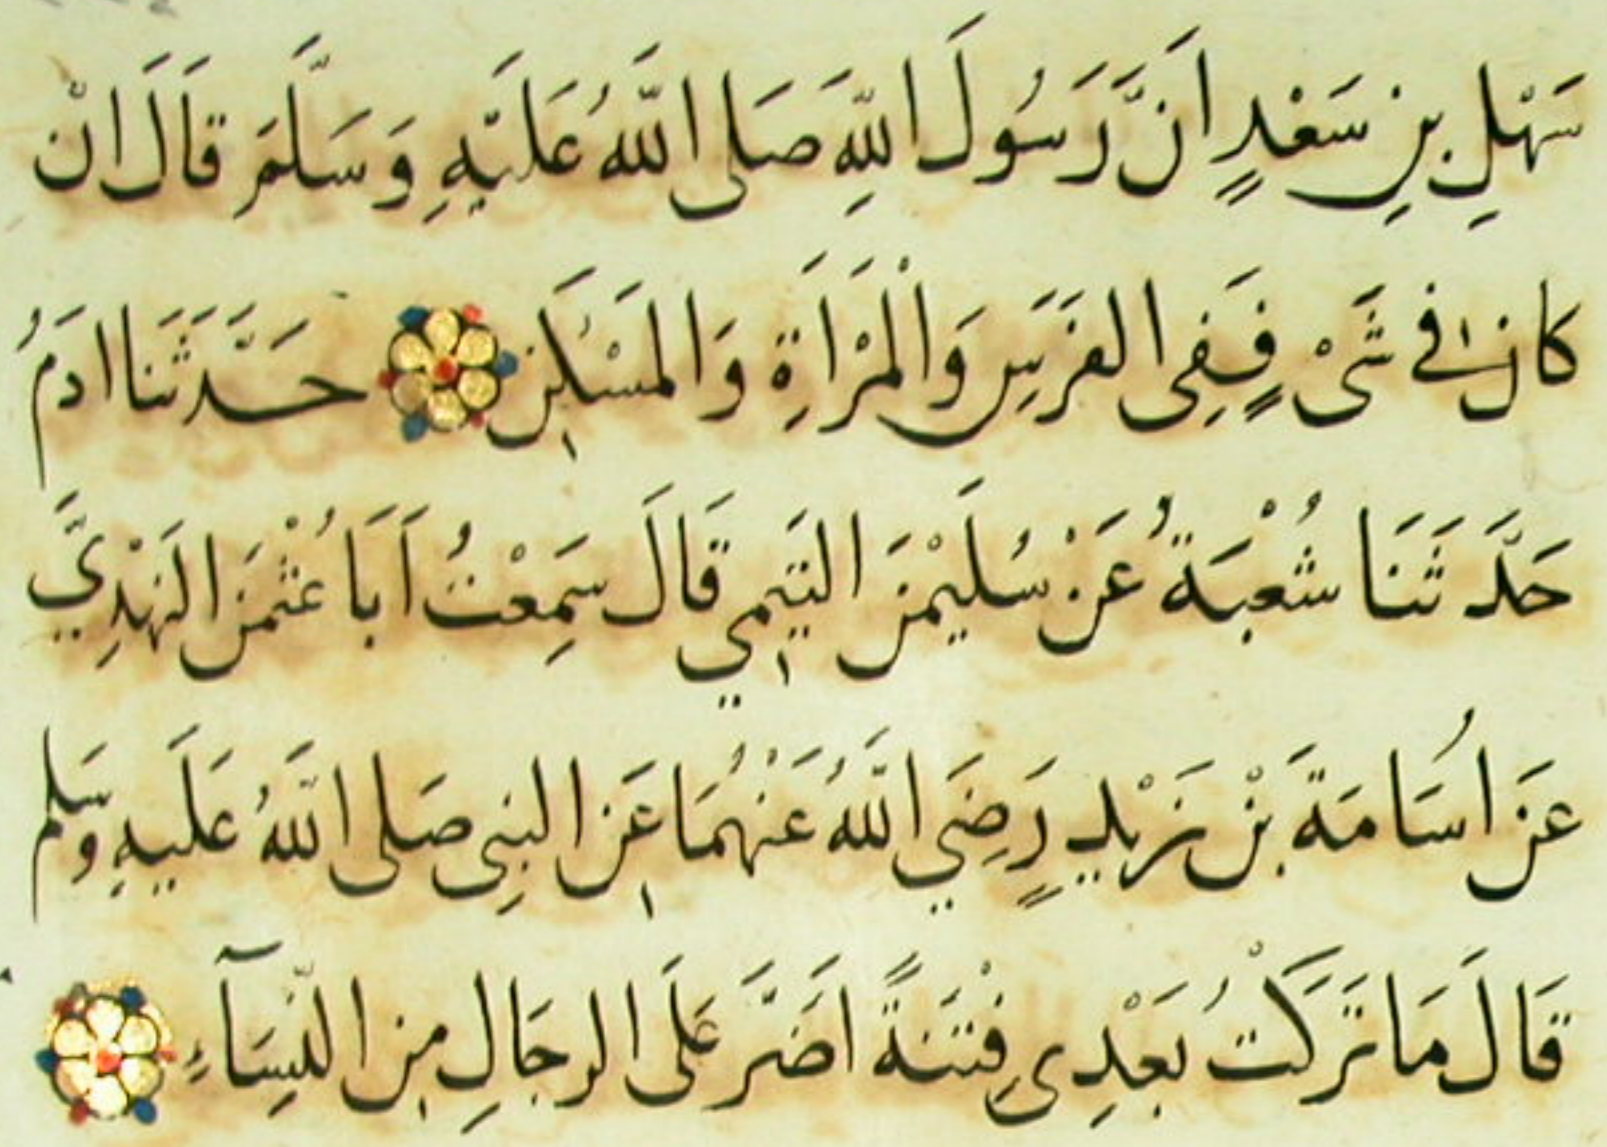 سَهْلِ بنِ سَعْدٍ اَنَّ رَسُولَ اللّٰهِ صَلَى اللّٰهُ عَلَيْهِ وَسَلَّمَ قَالَ انْ
كانَ فى شَىْءٍ فَفِى الفَرَسِ وَالْمَرْاَةِ وَالمَسْكَنِ حَدَّثَنَا ادَمُ
حَدَّثَنَا شُعْبَةُ عَنْ سُلَيْمٰنَ التَيمِي قَالَ سَمِعْتُ اَبَا عُثْمٰنَ النَهْدِيَّ
عَنْ اُسَامَةَ بْنِ زَيْدٍ رَضِيَ اللّٰهُ عَنْهُمَا عَنِ النبِى صَلى اللّٰهُ عَلَيهِ وَسَلم
قَالَ مَا تَرَكْتُ بَعْدِى فِتْنَةً اَضَرَّ عَلَى الرجَالِ مِنَ النِّسَآءِ